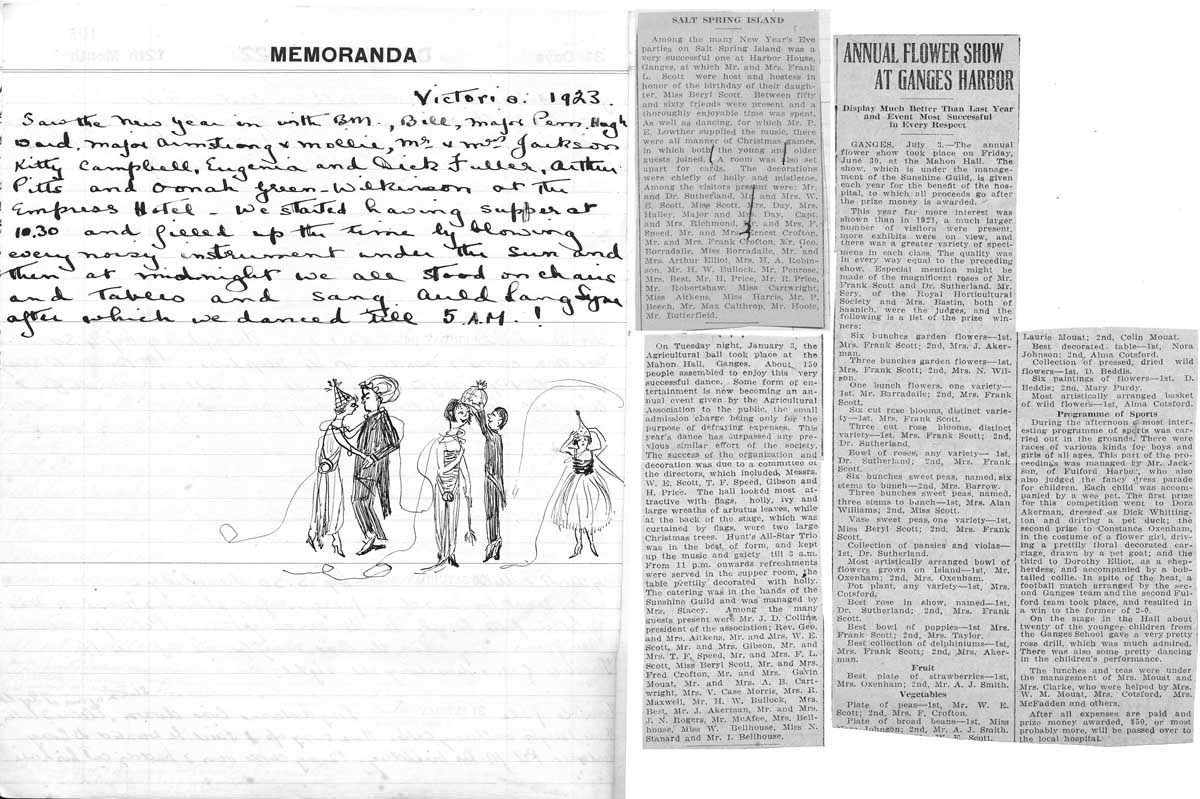 MEMORANDA
Victoria. 1923.
Saw the New Year in with B.M., Bill, Major Penn, Hugh
Ward, Major Armstrong & Mollie, Mr & Mrs Jackson
Kitty Campbell, Eugenia and Dick Fuller, Arthur
Pitts and Oonah Green-Wilkinson at the
Empress Hotel - We started having supper at
10.30 and filled up the time by blowing
every noisy instrument under the sun and
then at midnight we all stood on chairs
and tables and sang Auld Lang Syne
after which we danced till 5 A.M. !
SALT SPRING ISLAND
Among the many New Year's Eve
parties on Salt Spring Island was a
very successful one at Harbor House,
Ganges, at which Mr. and Mrs. Frank
L. Scott were host and hostess in
honor of the birthday of their daugh-
ter, Miss Beryl Scott. Between fifty
and sixty friends were present and a
thoroughly enjoyable time was spent.
As well as dancing, for which Mr. P.
E. Lowther supplied the music, there
were all manner of Christmas games,
in which both the young and older
guests joined. A room was also set
apart for cards. The decorations
were chiefly of holly and mistletoe.
Among the visitors present were: Mr.
and Dr. Sutherland, Mr. and Mrs. W.
E. Scott, Miss Scott, Mrs. Day, Mrs.
Halley, Major and Mrs. Day, Capt.
and Mrs. Richmond, Mr. and Mrs. F.
Speed, Mr. and Mrs. Ernest Crofton,
Mr. and Mrs. Frank Crofton, Mr. Geo.
Borradaile, Miss Borradaile, Mr. and
Mrs. Arthur Elliot, Mrs. H. A. Robin-
son, Mr. H. W. Bullock, Mr. Penrose,
Mrs. Best, Mr. H. Price, Mr. R. Price,
Mr. Robertshaw, Miss Cartwright,
Miss Aitkens, Miss Harris, Mr. P.
Beech, Mr. Max Calthrop, Mr. Hoole,
Mr. Butterfield.
On Tuesday night, January 3, the
Agricultural ball took place at the
Mahon Hall, Ganges. About 150
people assembled to enjoy this very
successful dance. Some form of en-
tertainment is now becoming an an-
nual event given by the Agricultural
Association to the public, the small
admission charge being only for the
purpose of defraying expenses. This
year's dance has surpassed any pre-
vious similar effort of the society.
The success of the organization and
decoration was due to a committee of
the directors, which included, Messrs.
W. E. Scott, T. F. Speed, Gibson and
H. Price. The hall looked most at-
tractive with flags, holly, ivy and
large wreaths of arbutus leaves, while
at the back of the stage, which was
curtained by flags, were two large
Christmas trees. Hunt's All-Star Trio
was in the best of form, and kept
up the music and gaiety till 3 a.m.
From 11 p.m. onwards refreshments
were served in the supper room, the
table prettily decorated with holly.
The catering was in the hands of the
Sunshine Guild and was managed by
Mrs. Stacey. Among the many
guests present were Mr. J. D. Collins,
president of the association; Rev. Geo.
and Mrs. Aitkens, Mr. and Mrs. W. E.
Scott, Mr. and Mrs. Gibson, Mr. and
Mrs. T. F. Speed, Mr. and Mrs. F. L.
Scott, Miss Beryl Scott, Mr. and Mrs.
Fred Crofton, Mr. and Mrs. Gavin
Mouat, Mr. and Mrs. A. B. Cart-
wright, Mrs. V. Case Morris, Mrs. R.
Maxwell, Mr. H. W. Bullock, Mrs.
Best, Mr. J. Akerman, Mr. and Mrs.
J. N. Rogers, Mr. McAfee, Mrs. Bell-
house, Miss W. Bellhouse, Miss N.
Stanard and Mr. I. Bellhouse.
ANNUAL FLOWER SHOW
AT GANGES HARBOR
Display Much Better Than Last Year
and Event Most Successful
in Every Respect
GANGES, July 3.—The annual
flower show took place on Friday,
June 30, at the Mahon Hall. The
show, which is under the manage-
ment of the Sunshine Guild, is given
each year for the benefit of the hos-
pital, to which all proceeds go after
the prize money is awarded.
This year far more interest was
shown than in 1921, a much larger
number of visitors were present,
more exhibits were on view, and
there was a greater variety of speci-
mens in each class. The quality was
in every way equal to the preceding
show. Especial mention might be
made of the magnificent roses of Mr.
Frank Scott and Dr. Sutherland. Mr.
Sery, of the Royal Horticultural
Society and Mrs. Bastin, both of
Saanich, were the judges, and the
following is a list of the prize win-
ners:
Six bunches garden flowers—1st,
Mrs. Frank Scott; 2nd, Mrs. J. Aker-
man.
Three bunches garden flowers—1st,
Mrs. Frank Scott; 2nd, Mrs. N. Wil-
son.
One bunch flowers, one variety—
1st, Mr. Barradaile; 2nd, Mrs. Frank
Scott.
Six cut rose blooms, distinct varie-
ty—1st, Mrs. Frank Scott.
Three cut rose blooms, distinct
variety—1st, Mrs. Frank Scott; 2nd,
Dr. Sutherland.
Bowl of roses, any variety—1st,
Dr. Sutherland; 2nd, Mrs. Frank
Scott.
Six bunches sweet peas, named, six
stems to bunch—2nd, Mrs. Barrow.
Three bunches sweet peas, named,
three stems to bunch—1st, Mrs. Alan
Williams; 2nd, Miss Scott.
Vase sweet peas, one variety—1st,
Miss Beryl Scott; 2nd, Mrs. Frank
Scott.
Collection of pansies and violas—
1st, Dr. Sutherland.
Most artistically arranged bowl of
flowers grown on Island—1st, Mr.
Oxenham; 2nd, Mrs. Oxenham.
Pot plant, any variety—1st, Mrs.
Cotsford.
Best rose in show, named—1st,
Dr. Sutherland; 2nd, Mrs. Frank
Scott.
Best bowl of poppies—1st Mrs.
Frank Scott; 2nd, Mrs. Taylor.
Best collection of delphiniums—1st,
Mrs. Frank Scott; 2nd, Mrs. Aker-
man.
Fruit
Best plate of strawberries—1st,
Mrs. Oxenham; 2nd, Mr. A. J. Smith.
Vegetables
Plate of peas—1st, Mr. W. E.
Scott; 2nd, Mrs. F. Crofton.
Plate of broad beans—1st, Miss
Johnson; 2nd, Mr. A. J. Smith.
E. Scott.
Laurie Mouat; 2nd, Colin Mouat.
Best decorated table—1st, Nora
Johnson; 2nd, Alma Cotsford.
Collection of pressed, dried wild
flowers—1st, D. Beddis.
Six paintings of flowers—1st, D.
Beddis; 2nd, Mary Purdy.
Most artistically arranged basket
of wild flowers—1st, Alma Cotsford.
Programme of Sports
During the afternoon a most inter-
esting programme of sports was car-
ried out in the grounds. There were
races of various kinds for boys and
girls of all ages. This part of the pro-
ceedings was managed by Mr. Jack-
son, of Fulford Harbor, who also
also judged the fancy dress parade
for children. Each child was accom-
panied by a wee pet. The first prize
for this competition went to Dora
Akerman, dressed as Dick Whitting-
ton and driving a pet duck; the
second prize to Constance Oxenham,
in the costume of a flower girl, driv-
ing a prettily floral decorated car-
riage, drawn by a pet goat; and the
third to Dorothy Elliot, as a shep-
herdess, and accompanied by a bob-
tailed collie. In spite of the heat, a
football match arranged by the sec-
ond Ganges team and the second Ful-
ford team took place, and resulted in
a win to the former of 2-0.
On the stage in the Hall about
twenty of the younger children from
the Ganges School gave a very pretty
rose drill, which was much admired.
There was also some pretty dancing
in the children's performance.
The lunches and teas were under
the management of Mrs. Mouat and
Mrs. Clarke, who were helped by Mrs.
W. M. Mouat, Mrs. Cotsford, Mrs.
McFadden and others.
After all expenses are paid and
prize money awarded, $50, or most
probably more, will be passed over to
the local hospital.